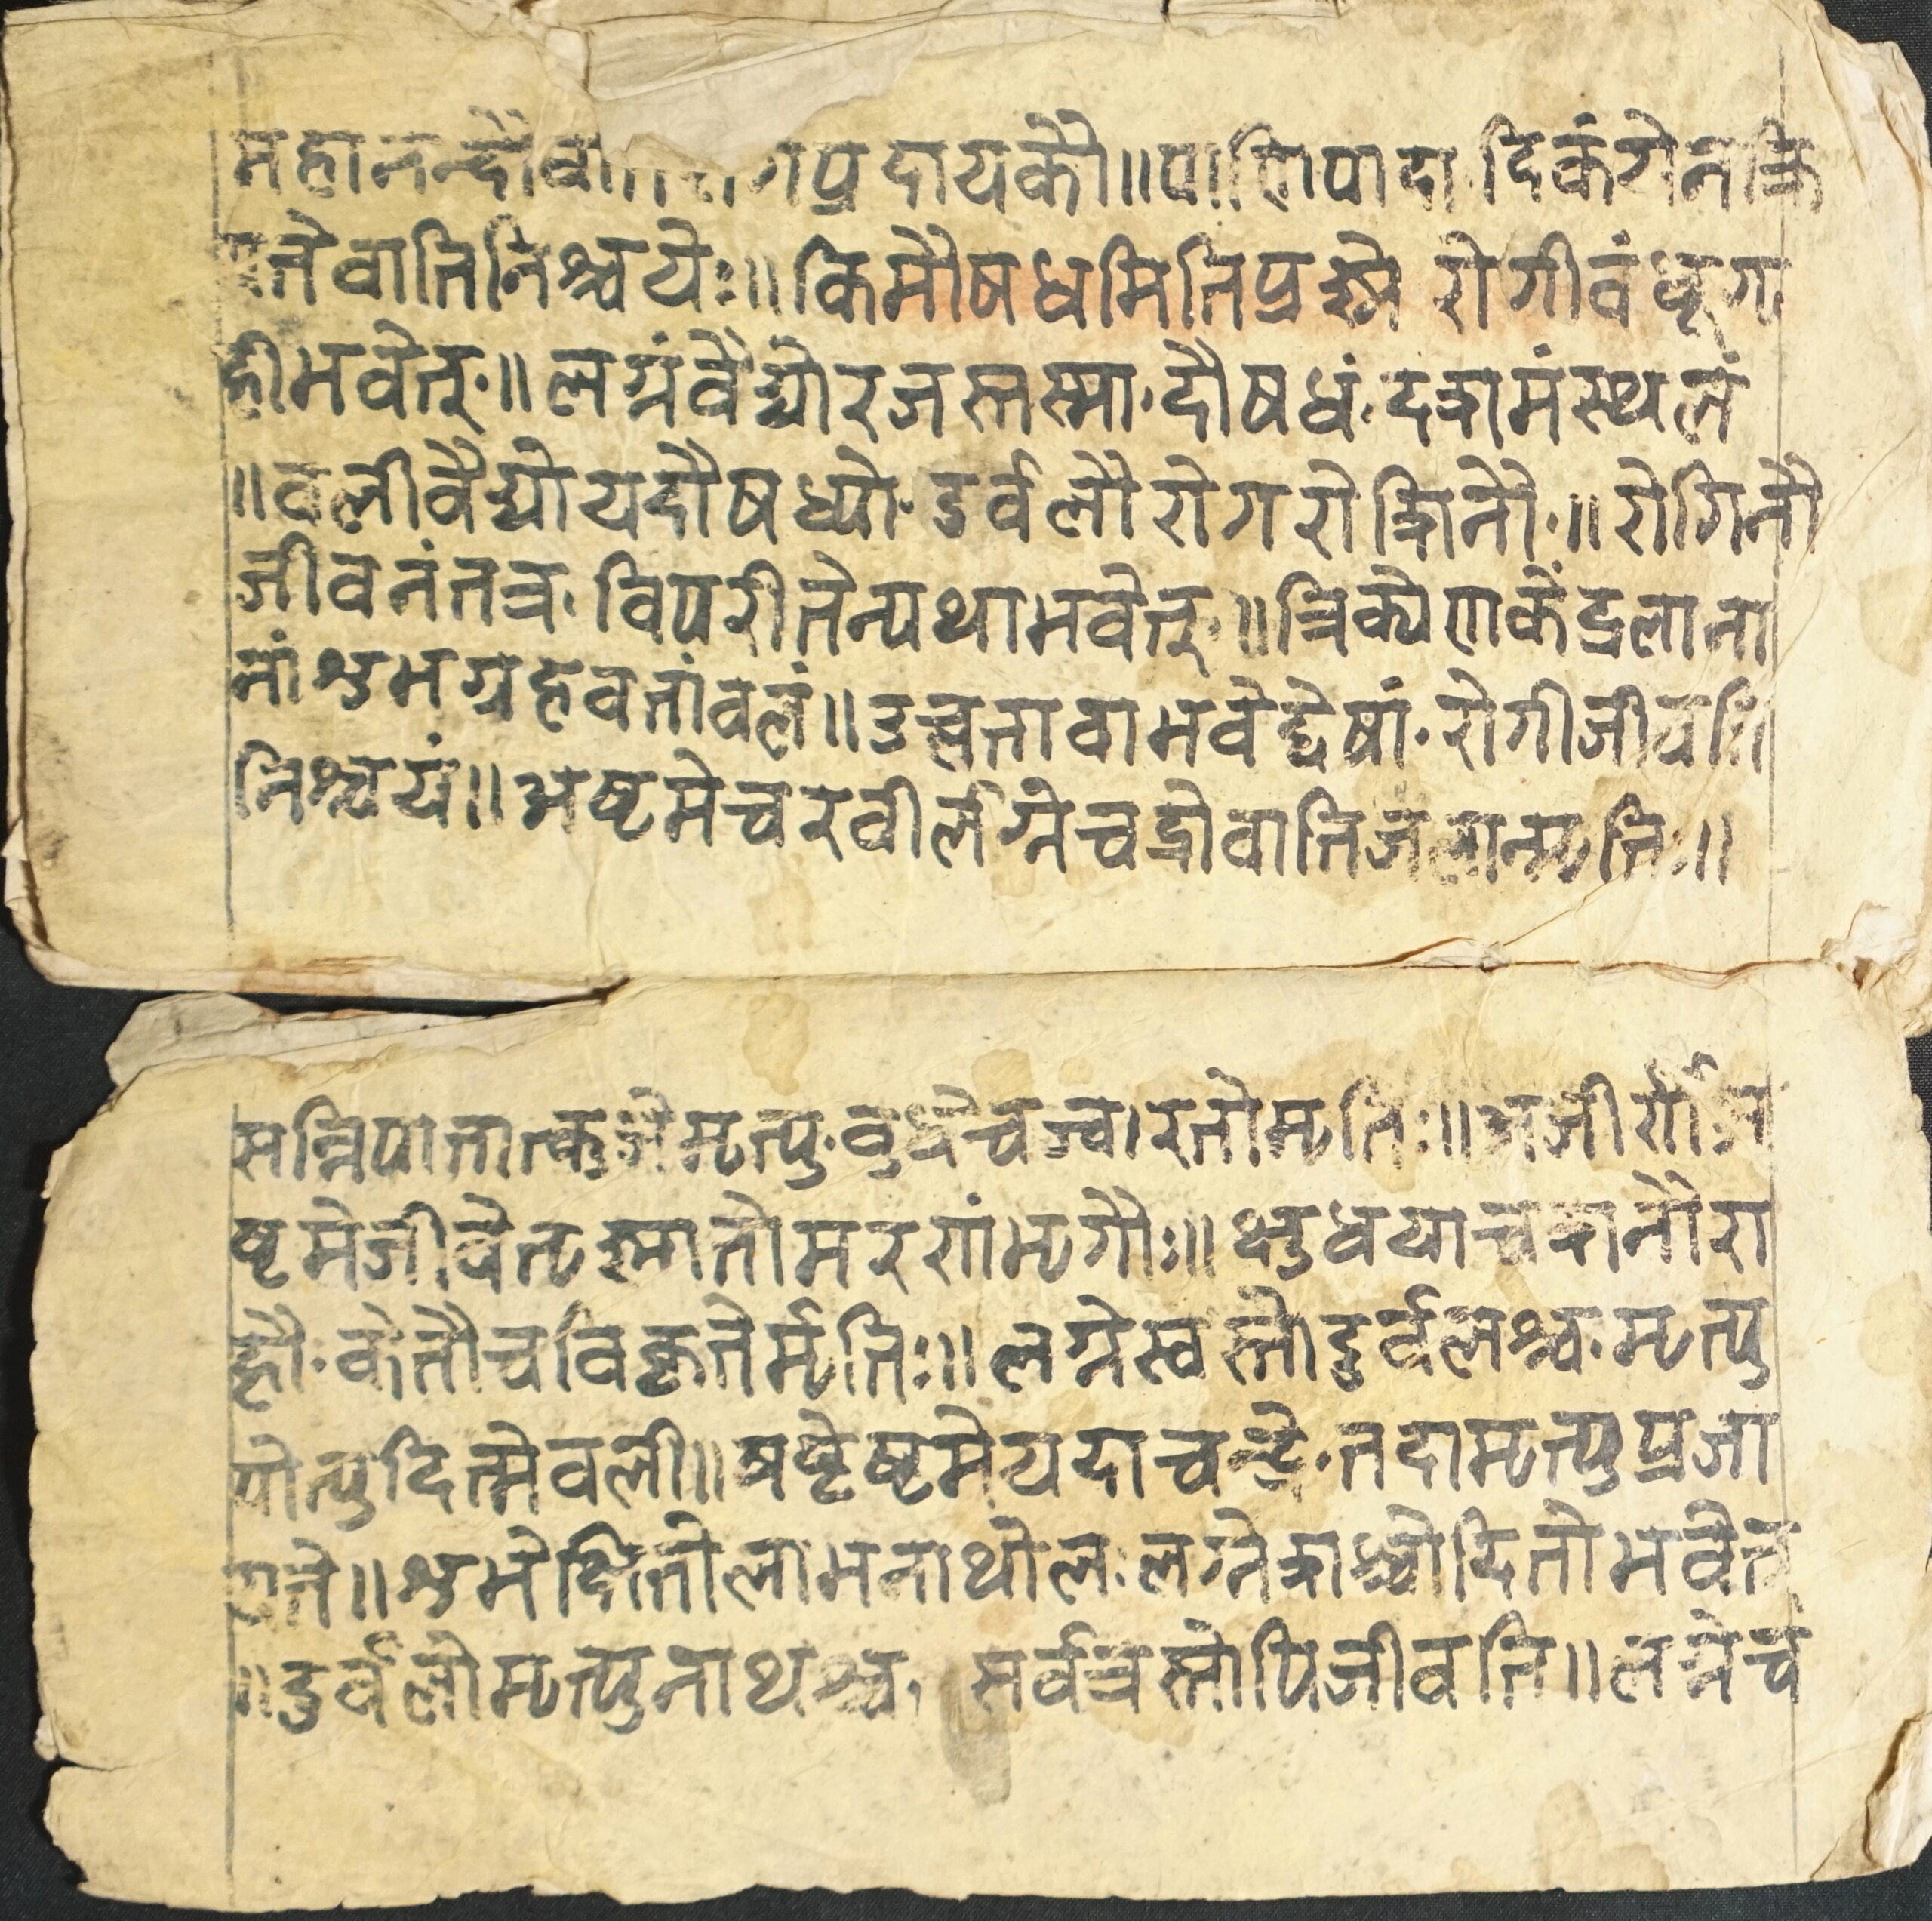 महानन्दौवा प्रदायकौ॥पाणिपादादिकंगेनकि
नैवातिनिश्चयेः॥किमौषधमितिप्रश्ने रोगीवंधूग
हीभवेत्॥लग्नंवैद्योरजस्तस्मा.दौषधं.दशमंस्थलं
॥वलीवैद्योयदौषध्यो.दुर्वलौरोगरोगिनौ.॥रोगिनौ
जीवनंतत्र. विपरीतेन्यथाभवेत्.॥त्रिकोणकेंद्रलाना
नांशुभग्रहवतांवलं॥उच्चतावाभवेद्येषां.रोगीजीवति
निश्चयं॥अष्टमेचरवीर्लग्नेचद्रोवातिजलान्मृतिः॥
सन्निपातात्कुजैमृत्यु.वुधैचज्वारतोमृतिः॥अजीर्णा
ष्टमेजीवैतृष्णातोमरणंमृगौः॥क्षुधयाचशनौरा
हौ.केतौचविकृतेर्मृतिः॥लग्नेस्वस्तोदुर्वलश्च.मृत्यु
पोत्युदितमेवली॥षष्ठेष्टमेयदाचन्द्रे.तदामृत्युप्रजा
यते॥शुभेक्षितोलाभनाथोल.लग्नेशश्चोदितोभवेत्
॥दुर्वलोमृत्युनाथश्च. सर्वत्रस्तोपिजीवति॥लग्नेच